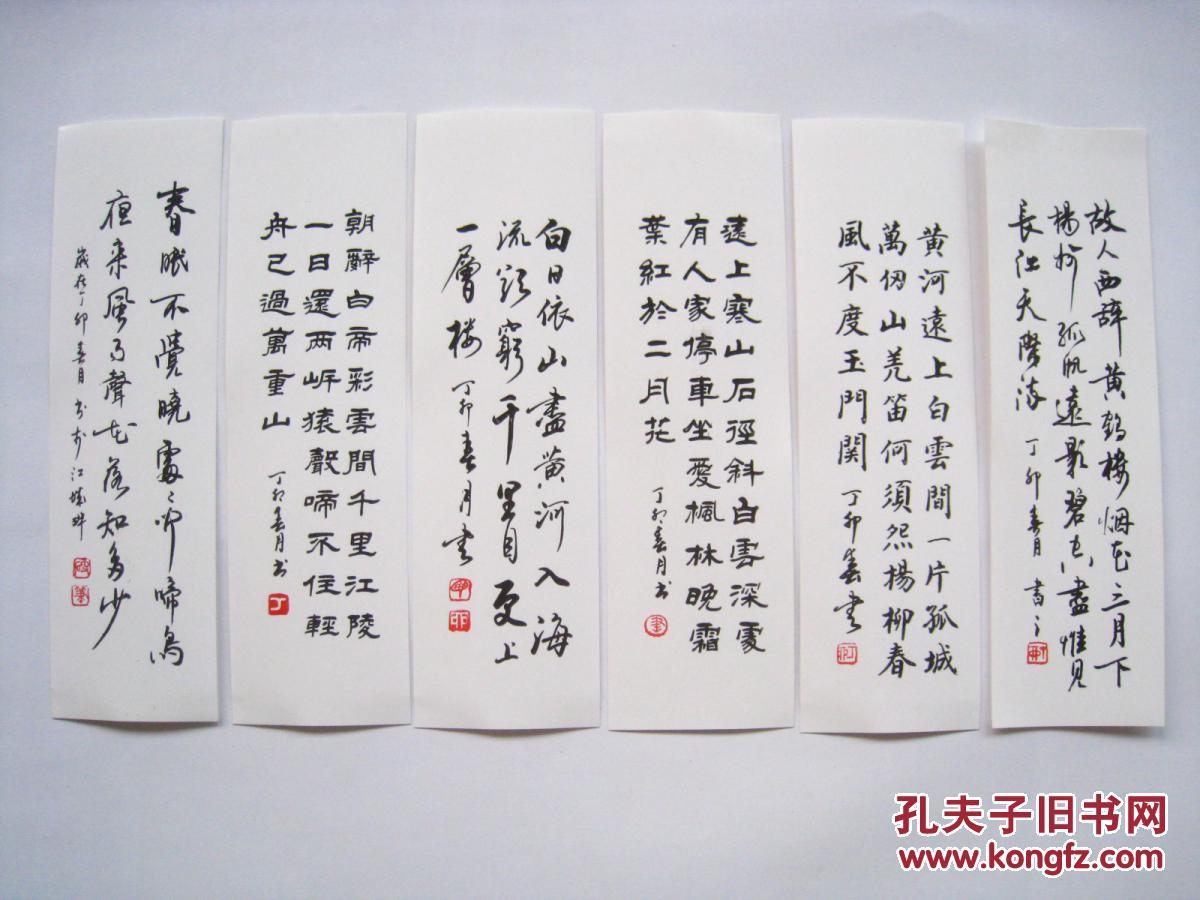 春眠不覺曉處々聞啼鳥
夜来風雨聲花落知多少
歲在丁卯春月书於江城
朝辭白帝彩雲間千里江陵
一日還两岍猿聲啼不住輕
舟已過萬重山
丁卯春月书
丁
白日依山盡黄河入海
流欲窮千里目更上
一層楼
丁卯春月书
遠上寒山石徑斜白雲深處
有人家停車坐愛楓林晚霜
葉紅於二月花
丁卯春月书
黄河遠上白雲間一片孤城
萬仞山羌笛何須怨楊柳春
風不度玉門関
丁卯春书
故人西辞黄鹤楼烟花三月下
揚州孤帆遠影碧空盡惟見
長江天際流
丁卯春月書
孔夫子旧书网
www.kongfz.com